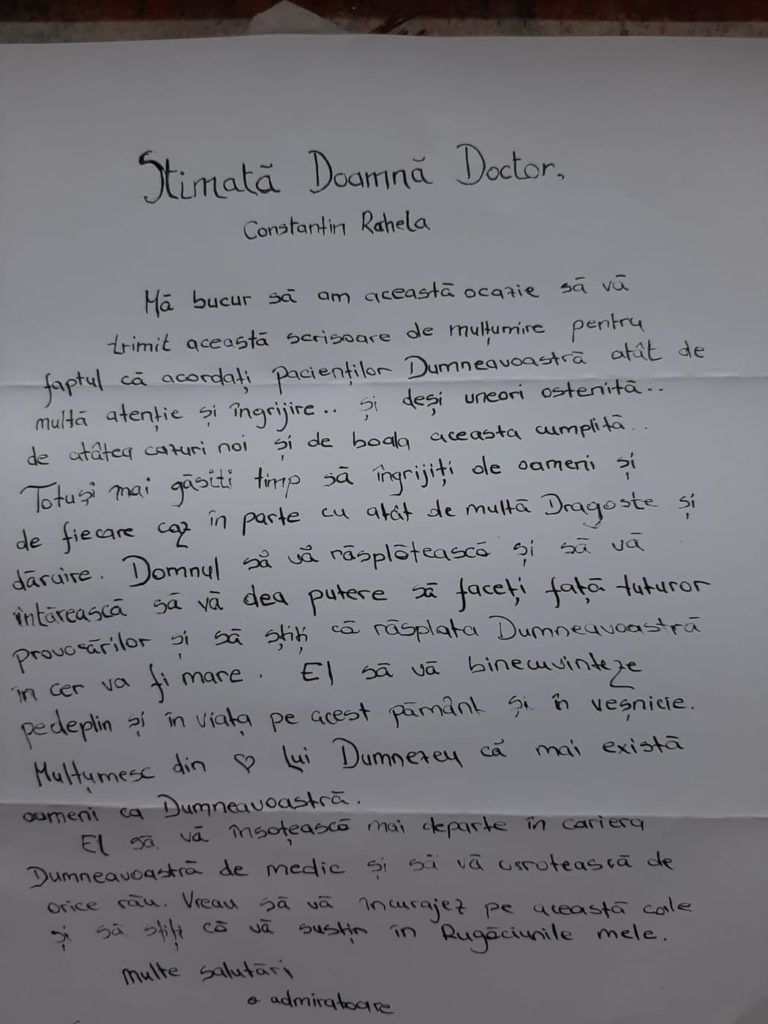 Stimată Doamnă Doctor,
Constantin Rahela
Mă bucur să am această ocazie să vă
trimit această scrisoare de mulțumire pentru
faptul că acordați pacienților Dumneavoastră atât de
multă atenție și îngrijire.. și deși uneori ostenită..
de atâtea cazuri noi și de boala aceasta cumplită..
Totuși mai găsiti timp să îngrijiți de oameni și
de fiecare caz în parte cu atât de multă Dragoste și
dăruire. Domnul să vă răsplătească și să vă
întărească să vă dea putere să faceți față tuturor
provocărilor și să știți că răsplata Dumneavoastră
în cer va fi mare. El să vă binecuvinteze
pedeplin și în viața pe acest pământ și în veșnicie.
Mulțumesc din ♡ lui Dumnezeu că mai există
oameni ca Dumneavoastră.
El să vă însoțească mai departe în cariera
Dumneavoastră de medic și să vă ocrotească de
orice rău. Vreau să vă încurajez pe această cale
și să știți că vă susțin în Rugăciunile mele.
multe salutări
o admiratoare